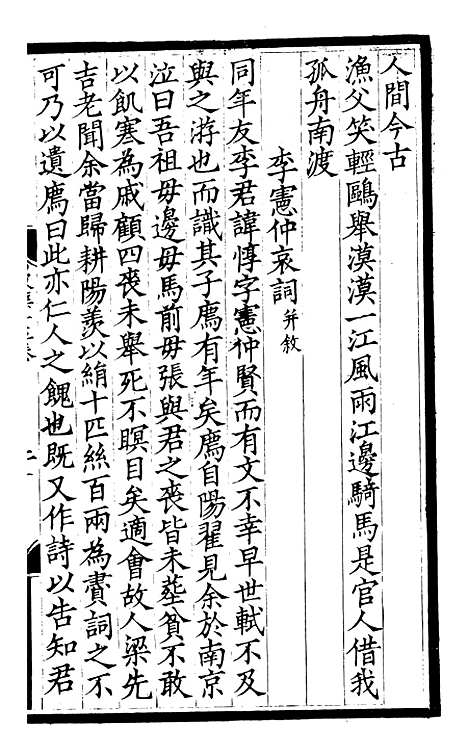 人間今古
漁父笑輕鷗舉漠漠一江風雨江邊騎馬是官人借我
孤舟南渡
李憲仲哀詞并敘
同年友李君諱惇字憲仲賢而有文不幸早世軾不及
與之游也而識其子廌有年矣廌自陽翟見余於南京
泣曰吾祖母邊母馬前母張與君之喪皆未塟貧不敢
以飢寒為戚顧四喪未舉死不瞑目矣適會故人梁先
吉老聞余當歸耕陽羡以絹十匹絲百兩為賮詞之不
可乃以遺廌曰此亦仁人之餽也既又作詩以告知君